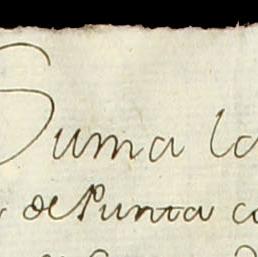 Suma la
de Punta co